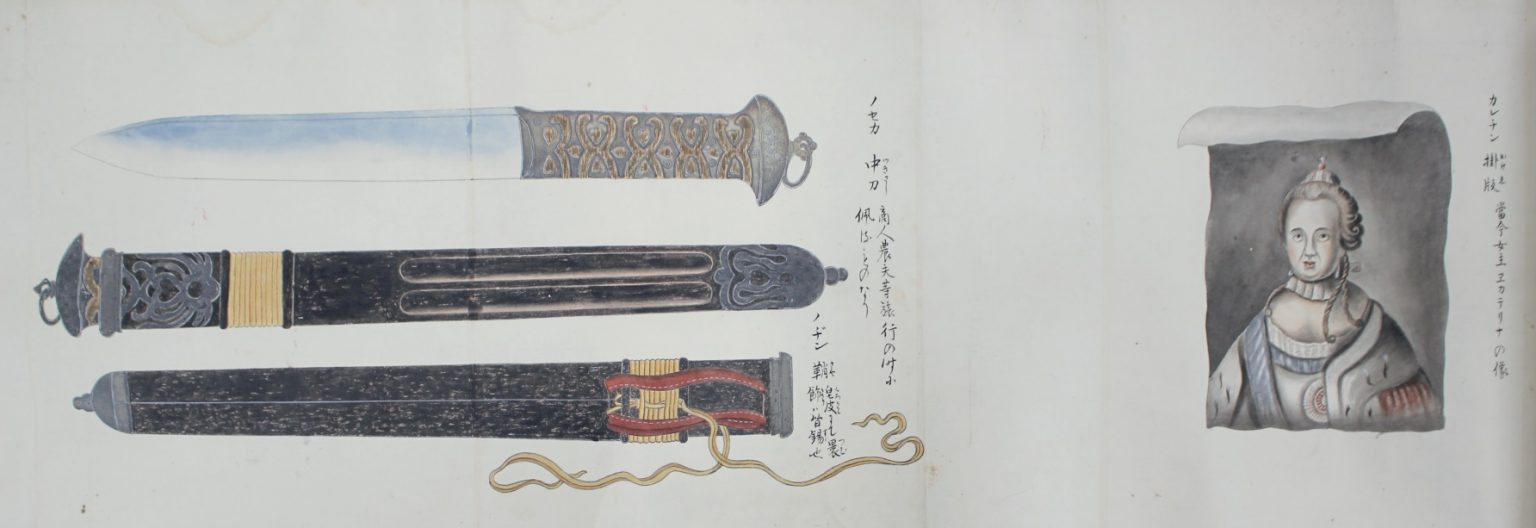 カルチン 掛版 當今女主ヱカテリナの像
ノセカ 中刀 商人農夫等旅行の時に
佩はものなり
ノヂン 鞘 皮にて
飾ハ皆錫也